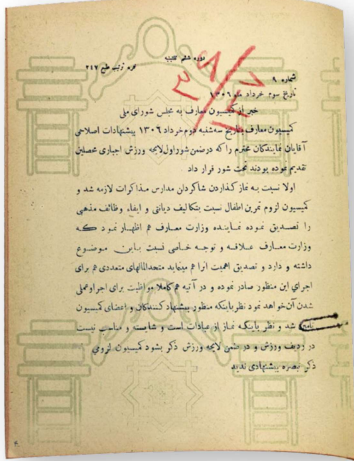 دوره ششم تقنینیه
نمره ترتیب طبع ۲۱۷
شماره ۹
تاریخ سوم خرداد ماه ۱۳۰۶
خبر از کمیسیون معارف به مجلس شورای ملی
کمیسیون معارف بتاریخ سه‌شنبه دوم خرداد ۱۳۰۶ پیشنهادات اصلاحی
آقایان نمایندگان محترم را که در ضمن شور اول لایحه ورزش اجباری محصلین
تقدیم نموده بودند تحت شور قرار داد
اولا نسبت به نماز گذاردن شاگردان مدارس مذاکرات لازمه شد و
کمیسیون لزوم تمرین اطفال نسبت بتکالیف دیانتی و ایفاء وظائف مذهبی
را تصدیق نموده نماینده وزارت معارف هم اظهار نمود که
وزارت معارف علاقه و توجه خاصی نسبت باین موضوع
داشته و دارد و تصدیق اهمیت آنرا هم مینماید متحدالمالهای متعددی هم برای
اجرای این منظور صادر نموده و در آتیه هم کاملا مواظبت برای اجرا و عملی
شدن آن خواهد نمود نظر باینکه منظور پیشنهاد کنندگان و اعضای کمیسیون
شد و نظر باینکه نماز از عبادات است و شایسته و مناسب نیست
در ردیف ورزش و در ضمن لایحه ورزش ذکر بشود کمیسیون لزومی
ذکر تبصره پیشنهادی ندید